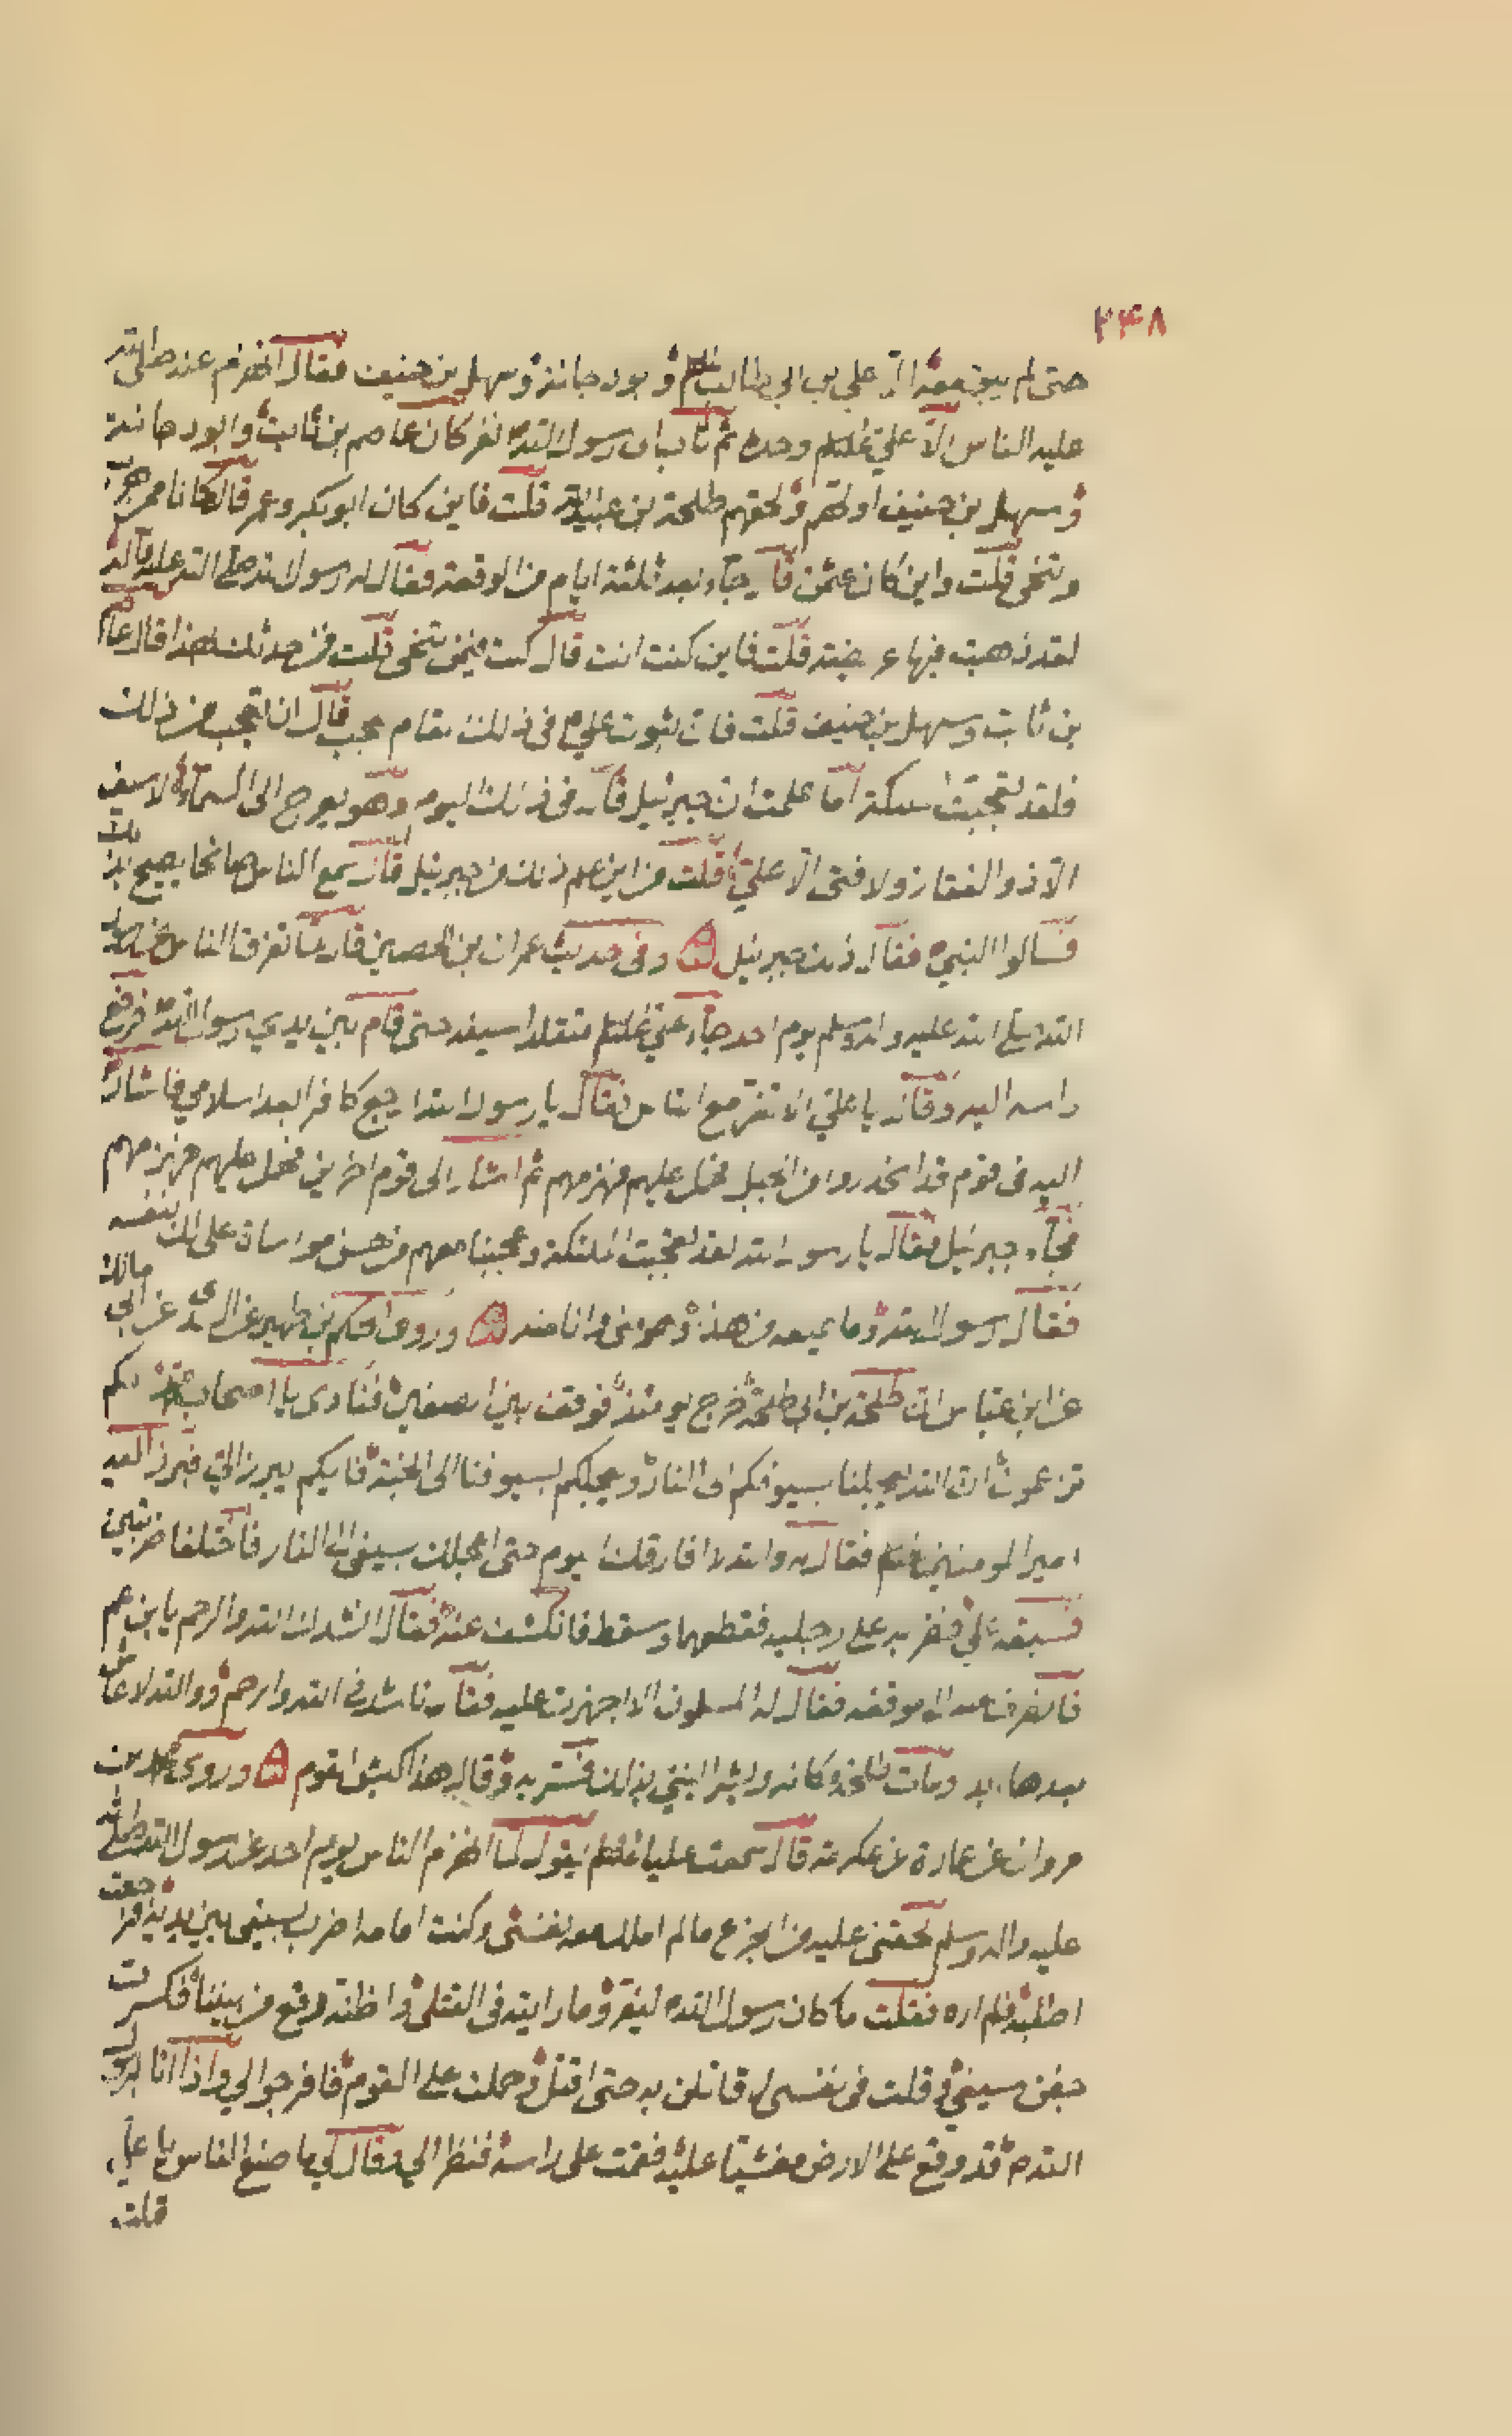 ۲۴۸
حتى لم يبق معه الا علي بن ابي طالب علیلم و ابود جانة و سهل بن حنيف فقال انهزم عنه صلى الله
عليه الناس الا علي علیلم وحده ثم ثاب الى رسول الله نفر كان عاصم بن ثابت و ابود جانة
و سهل بن حنيف اولهم و لحقهم طلحة بن عبيد الله قلت فاين كان ابوبكر و عمر قال كانا ممن
و تنحى قلت و اين كان عثمن قال جاء بعد ثلثة ايام من الوقعة فقال له رسول الله صلى الله عليه و آله
لقد ذهبت فيها عريضة قلت فاين كنت انت قال كنت فيمن تنحى قلت فمن حدثك بهذا قال عاصم
بن ثابت و سهل بن حنيف قلت فان ثبوت علي في ذلك المقام عجب قال ان تعجب من ذلك
فلقد تعجبت الملئكة اما علمت ان جبرئيل قال في ذلك اليوم و هو يعرج الى السماء لا سيف
الا ذوالفقار ولا فتى الا علي قلت من اين علم ذلك من جبرئيل قال سمع الناس صائحا يصيح بذلك
فسالوا النبي فقال ذلك جبرئيل و في حديث عمران بن الحصين قال لما تفرق الناس عن رسول
الله صلى الله عليه و اله و سلم يوم احد جاء علي علیلم متقلدا سيفه حتى قام بين يدي رسول الله فرفع
راسه اليه و قال يا علي لا تفر مع الناس فقال يا رسول الله ارجع كافرا بعد اسلامي فاشار
اليه في قوم قد انحدروا من الجبل فحمل عليهم فهزمهم ثم اشار الى قوم اخرين فحمل عليهم فهزمهم
فجاء جبرئيل فقال يا رسول الله لقد تعجبت الملئكة و عجبنا معهم من حسن مواساة علي لك بنفسه
فقال رسول الله و ما يمنعه من هذا و هو مني و انا منه و روى الحكم بن ظهير عن السدي عن ابي مالك
عن ابن عباس ان طلحة بن ابي طلحة خرج يومئذ فوقف بين الصفين فنادى يا اصحاب محمد انكم
تزعمون ان الله يعجلنا بسيوفكم الى النار و يعجلكم بسيوفنا الى الجنة فايكم يبرز الي فبرز اليه
امير المومنين علیلم فقال له والله لا افارقك اليوم حتى اعجلك بسيفي الى النار فاختلفا ضربتين
فسبقه علي فضربه على رجليه فقطعهما و سقط فانكشف عنه فقال انشدك الله و الرحم يا ابن عم
فانصرف عنه الى موقفه فقال له المسلمون الا اجهزت عليه فقال ناشدني الله و الرحم و والله لا عاش
بعدها ابدا و مات طلحة و كانه و بشر النبي بذلك فسر به و قال هذا كبش القوم و روى محمد بن
مروان عن عمارة عن عكرمة قال سمعت عليا علیلم يقول لما انهزم الناس يوم احد عن رسول الله صلى الله
عليه و اله و سلم لحقني عليه من الجزع ما لم املك معه نفسي و كنت امامه اضرب بسيفي بين يديه فرجعت
اطلبه فلم اره فقلت ما كان رسول الله ليفر و ما رايته في القتلى و اظنه رفع من بيننا فكسرت
جفن سيفي و قلت في نفسي لاقاتلن به حتى اقتل و حملت على القوم فافرجوا لي و اذا انا برسول
الله قد وقع على الارض مغشيا عليه فقمت على راسه فنظر الي فقال لي ما صنع الناس يا علي
قلت